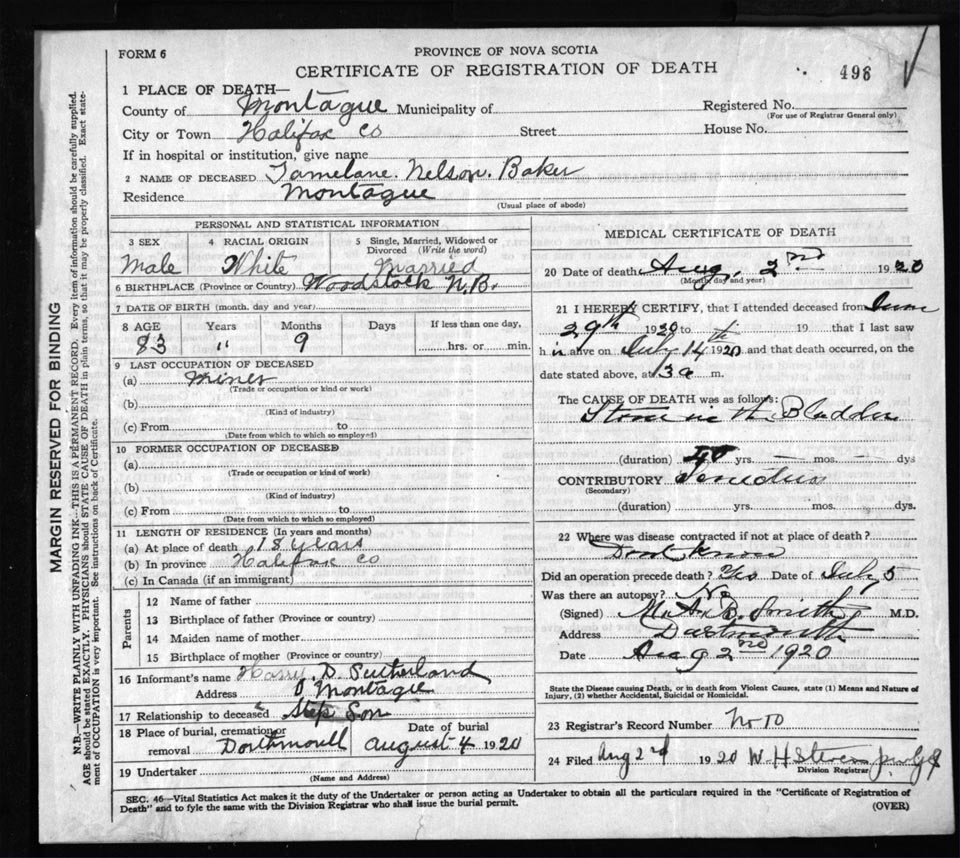 FORM 6
PROVINCE OF NOVA SCOTIA
CERTIFICATE OF REGISTRATION OF DEATH
496
1 PLACE OF DEATH—
County of Montague Municipality of
Registered No.
(For use of Registrar General only)
City or Town Halifax Co Street House No.
If in hospital or institution, give name
2 NAME OF DECEASED Tamelane. Nelson. Baker
Residence Montague
(Usual place of abode)
PERSONAL AND STATISTICAL INFORMATION
3 SEX 4 RACIAL ORIGIN 5 Single, Married, Widowed or Divorced (Write the word)
Male White Married
6 BIRTHPLACE (Province or Country) Woodstock N.B.
7 DATE OF BIRTH (month, day, and year)
8 AGE Years Months Days If less than one day,
83 " 9 hrs. or min.
9 LAST OCCUPATION OF DECEASED
(a) Miner
(Trade or occupation or kind or work)
(b)
(Kind of industry)
(c) From to
(Date from which to which so employed)
10 FORMER OCCUPATION OF DECEASED
(a)
(Trade or occupation or kind of work)
(b)
(Kind of industry)
(c) From to
(Date from which to which so employed)
11 LENGTH OF RESIDENCE (In years and months)
(a) At place of death 18 years
(b) In province Halifax Co
(c) In Canada (if an immigrant)
Parents
12 Name of father
13 Birthplace of father (Province or country)
14 Maiden name of mother
15 Birthplace of mother (Province or country)
16 Informant's name Harry D. Sutherland
Address Montague
17 Relationship to deceased Step Son
18 Place of burial, cremation or removal Dorthmoutt
Date of burial
August 4 1920
19 Undertaker
(Name and Address)
MEDICAL CERTIFICATE OF DEATH
20 Date of death Aug. 2nd 1920
(Month, day and year)
21 I HEREBY CERTIFY, that I attended deceased from June
29th 1920 to 19 that I last saw
h is alive on July 14th 1920 and that death occurred, on the
date stated above, at 3 a m.
The CAUSE OF DEATH was as follows:
Stone in the Bladder
(duration) yrs. — mos. — dys
CONTRIBUTORY
(Secondary)
(duration) yrs. mos. dys.
22 Where was disease contracted if not at place of death?
Dont know
Did an operation precede death? Yes Date of July 5
Was there an autopsy? No
(Signed) M. A. B. Smith M.D.
Address Dartmouth
Date Aug 2nd 1920
State the Disease causing Death, or in death from Violent Causes, state (1) Means and Nature of
Injury, (2) whether Accidental, Suicidal or Homicidal.
23 Registrar's Record Number
24 Filed Aug 2nd 1920 W. H.
Division Registrar
SEC. 46—Vital Statistics Act makes it the duty of the Undertaker or person acting as Undertaker to obtain all the particulars required in the "Certificate of Registration of
Death" and to fyle the same with the Division Registrar who shall issue the burial permit.
(OVER)
MARGIN RESERVED FOR BINDING
N.B.—WRITE PLAINLY WITH UNFADING INK—THIS IS A PERMANENT RECORD. Every item of information should be carefully supplied.
AGE should be stated EXACTLY. PHYSICIANS should STATE CAUSE OF DEATH in plain terms, so that it may be properly classified. Exact state-
ment of OCCUPATION is very important. See instructions on back of Certificate.